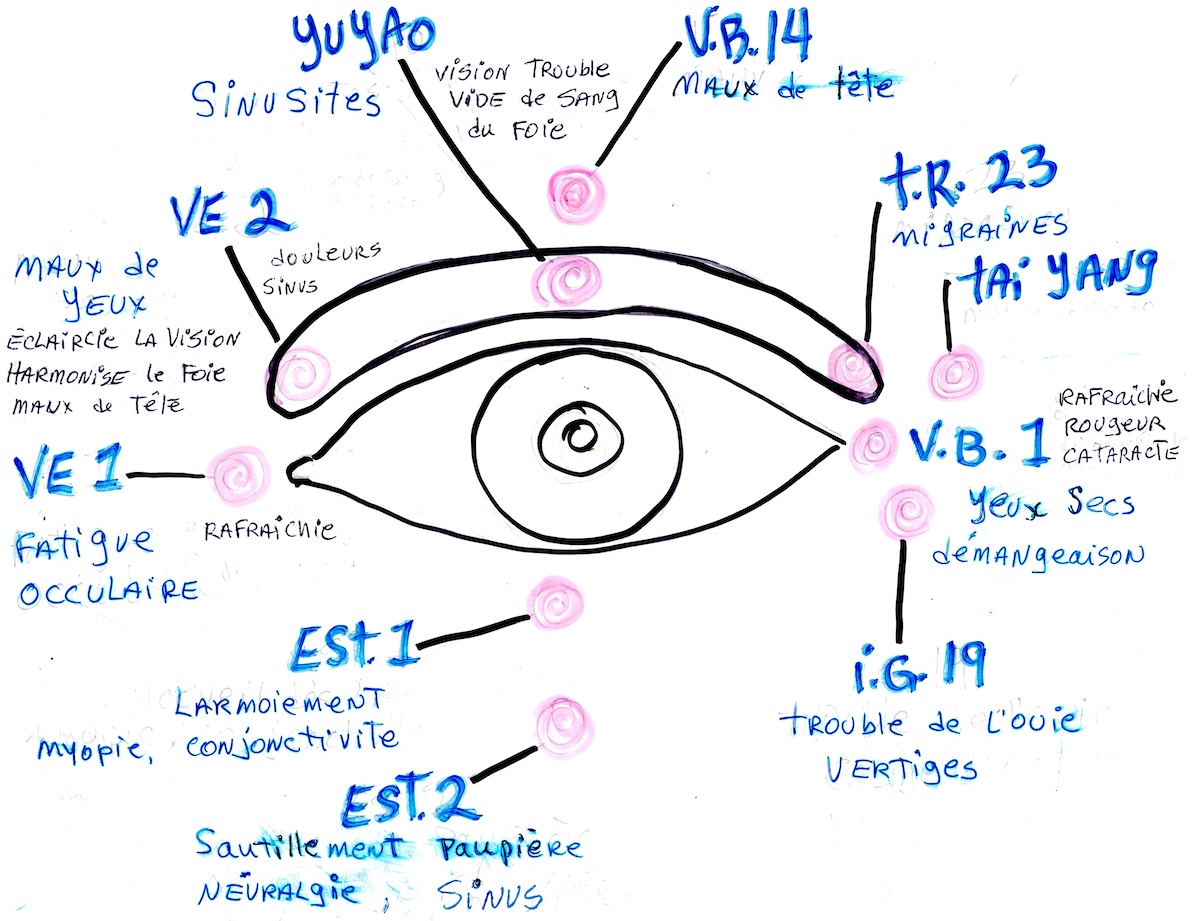 YUYAO
SiNUSites
ViSiON TROUBLE
ViDE de SANG
du FOiE
V.B.14
MAUX de tête
t.R. 23
MigRAiNES
tAi YANG
VE 2
douLEURS
SiNUS
MAUX de
YEUX
ÉCLAiRCiE LA ViSiON
HARMONiSE le FoiE
MAUX de TÊtE
VE 1
RAFRAiCHiE
FAtigue
OCCULAiRE
V.B.1
RAFRAiCHiE
ROUgEUR
CATARACTE
Yeux Secs
démANgeAiSON
i.G. 19
tROUBLE de L'OUie
VERTiges
ESt.1
LARMOiEMENT
myopie, conjonctivite
EST.2
Sautillement PAUpièRE
NEVRALgie, SiNUS